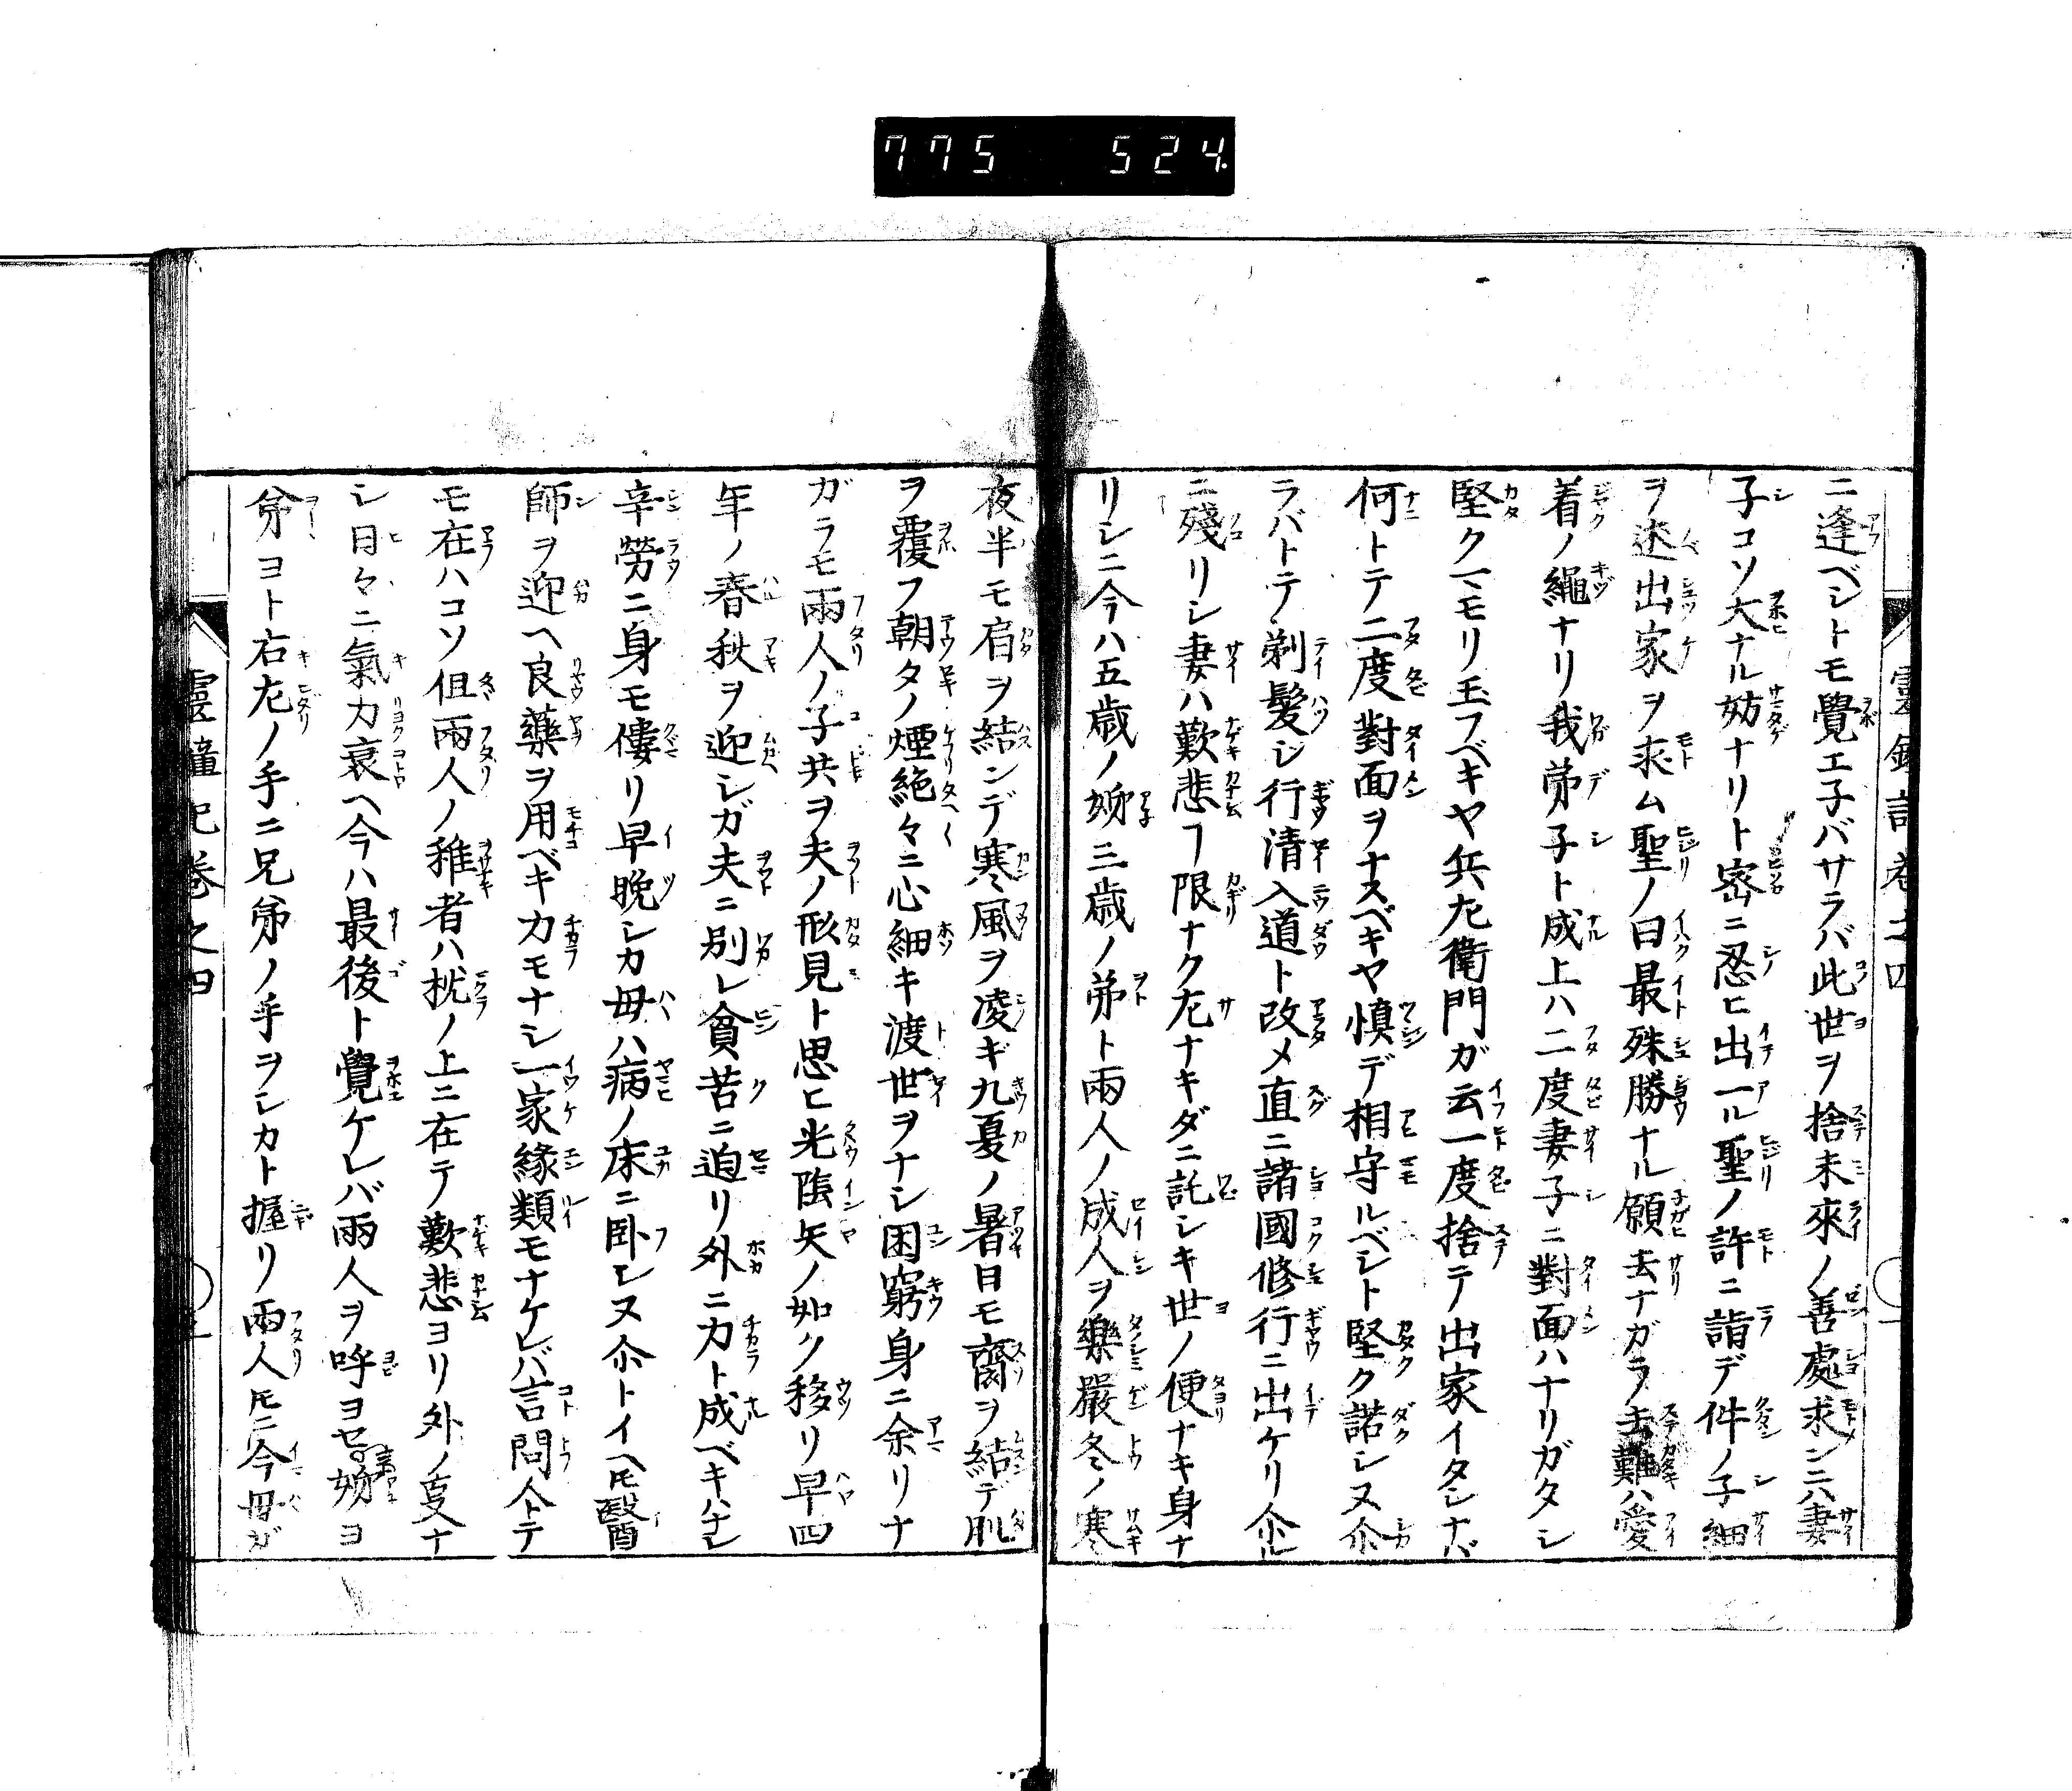 775 524
靈鐘記卷之四
ニ逢ベシトモ覺エ子バサラバ此世ヲ捨未來ノ善處求ンニハ妻
子コソ大ナル妨ナリト密ニ忍ヒ出一ル聖ノ許ニ詣デ件ノ子細
ヲ述出家ヲ求ム聖ノ曰最殊勝ナル願去ナガラ去難ハ愛
着ノ繩ナリ我弟子ト成上ハ二度妻子ニ對面ハナリガタシ
堅クマモリ玉フベキヤ兵左衛門ガ云一度捨テ出家イタシナバ
何トテ二度對面ヲナスベキヤ慎デ相守ルベシト堅ク諾シヌ尒
ラバトテ剃髪シ行清入道ト改メ直ニ諸國修行ニ出ケリ尒ルニ
ニ殘リシ妻ハ歎悲フ限ナク左ナキダニ詫シキ世ノ便ナキ身ナ
リシニ今ハ五歳ノ娚三歳ノ弟ト兩人ノ成人ヲ樂嚴冬ノ寒
夜半モ肩ヲ結ンデ寒風ヲ凌ギ九夏ノ暑日モ齋ヲ結デ肌
ヲ覆フ朝タノ煙絶々ニ心細キ渡世ヲナシ困窮身ニ余リナ
ガラモ兩人ノ子共ヲ夫ノ形見ト思ヒ光陰矢ノ如ク移リ早四
年ノ春秋ヲ迎シガ夫ニ別レ貧苦ニ迫リ外ニ力ト成ベキハナシ
辛勞ニ身モ僂リ早晩シカ母ハ病ノ床ニ臥シヌ尒トイヘ𪜈醫
師ヲ迎ヘ良藥ヲ用ベキ力モナシ一家縁類モナケレバ言問人トテ
モ在ハコソ但兩人ノ稚者ハ枕ノ上ニ在テ歎悲ヨリ外ノ𫝆ナ
シ日々ニ氣力衰ヘ今ハ最後ト覺ケレバ兩人ヲ呼ヨセ娚ヨ
弟ヨト右左ノ手ニ兄弟ノ手ヲシカト握リ兩人𪜈ニ今母ガ
靈鐘記卷之四